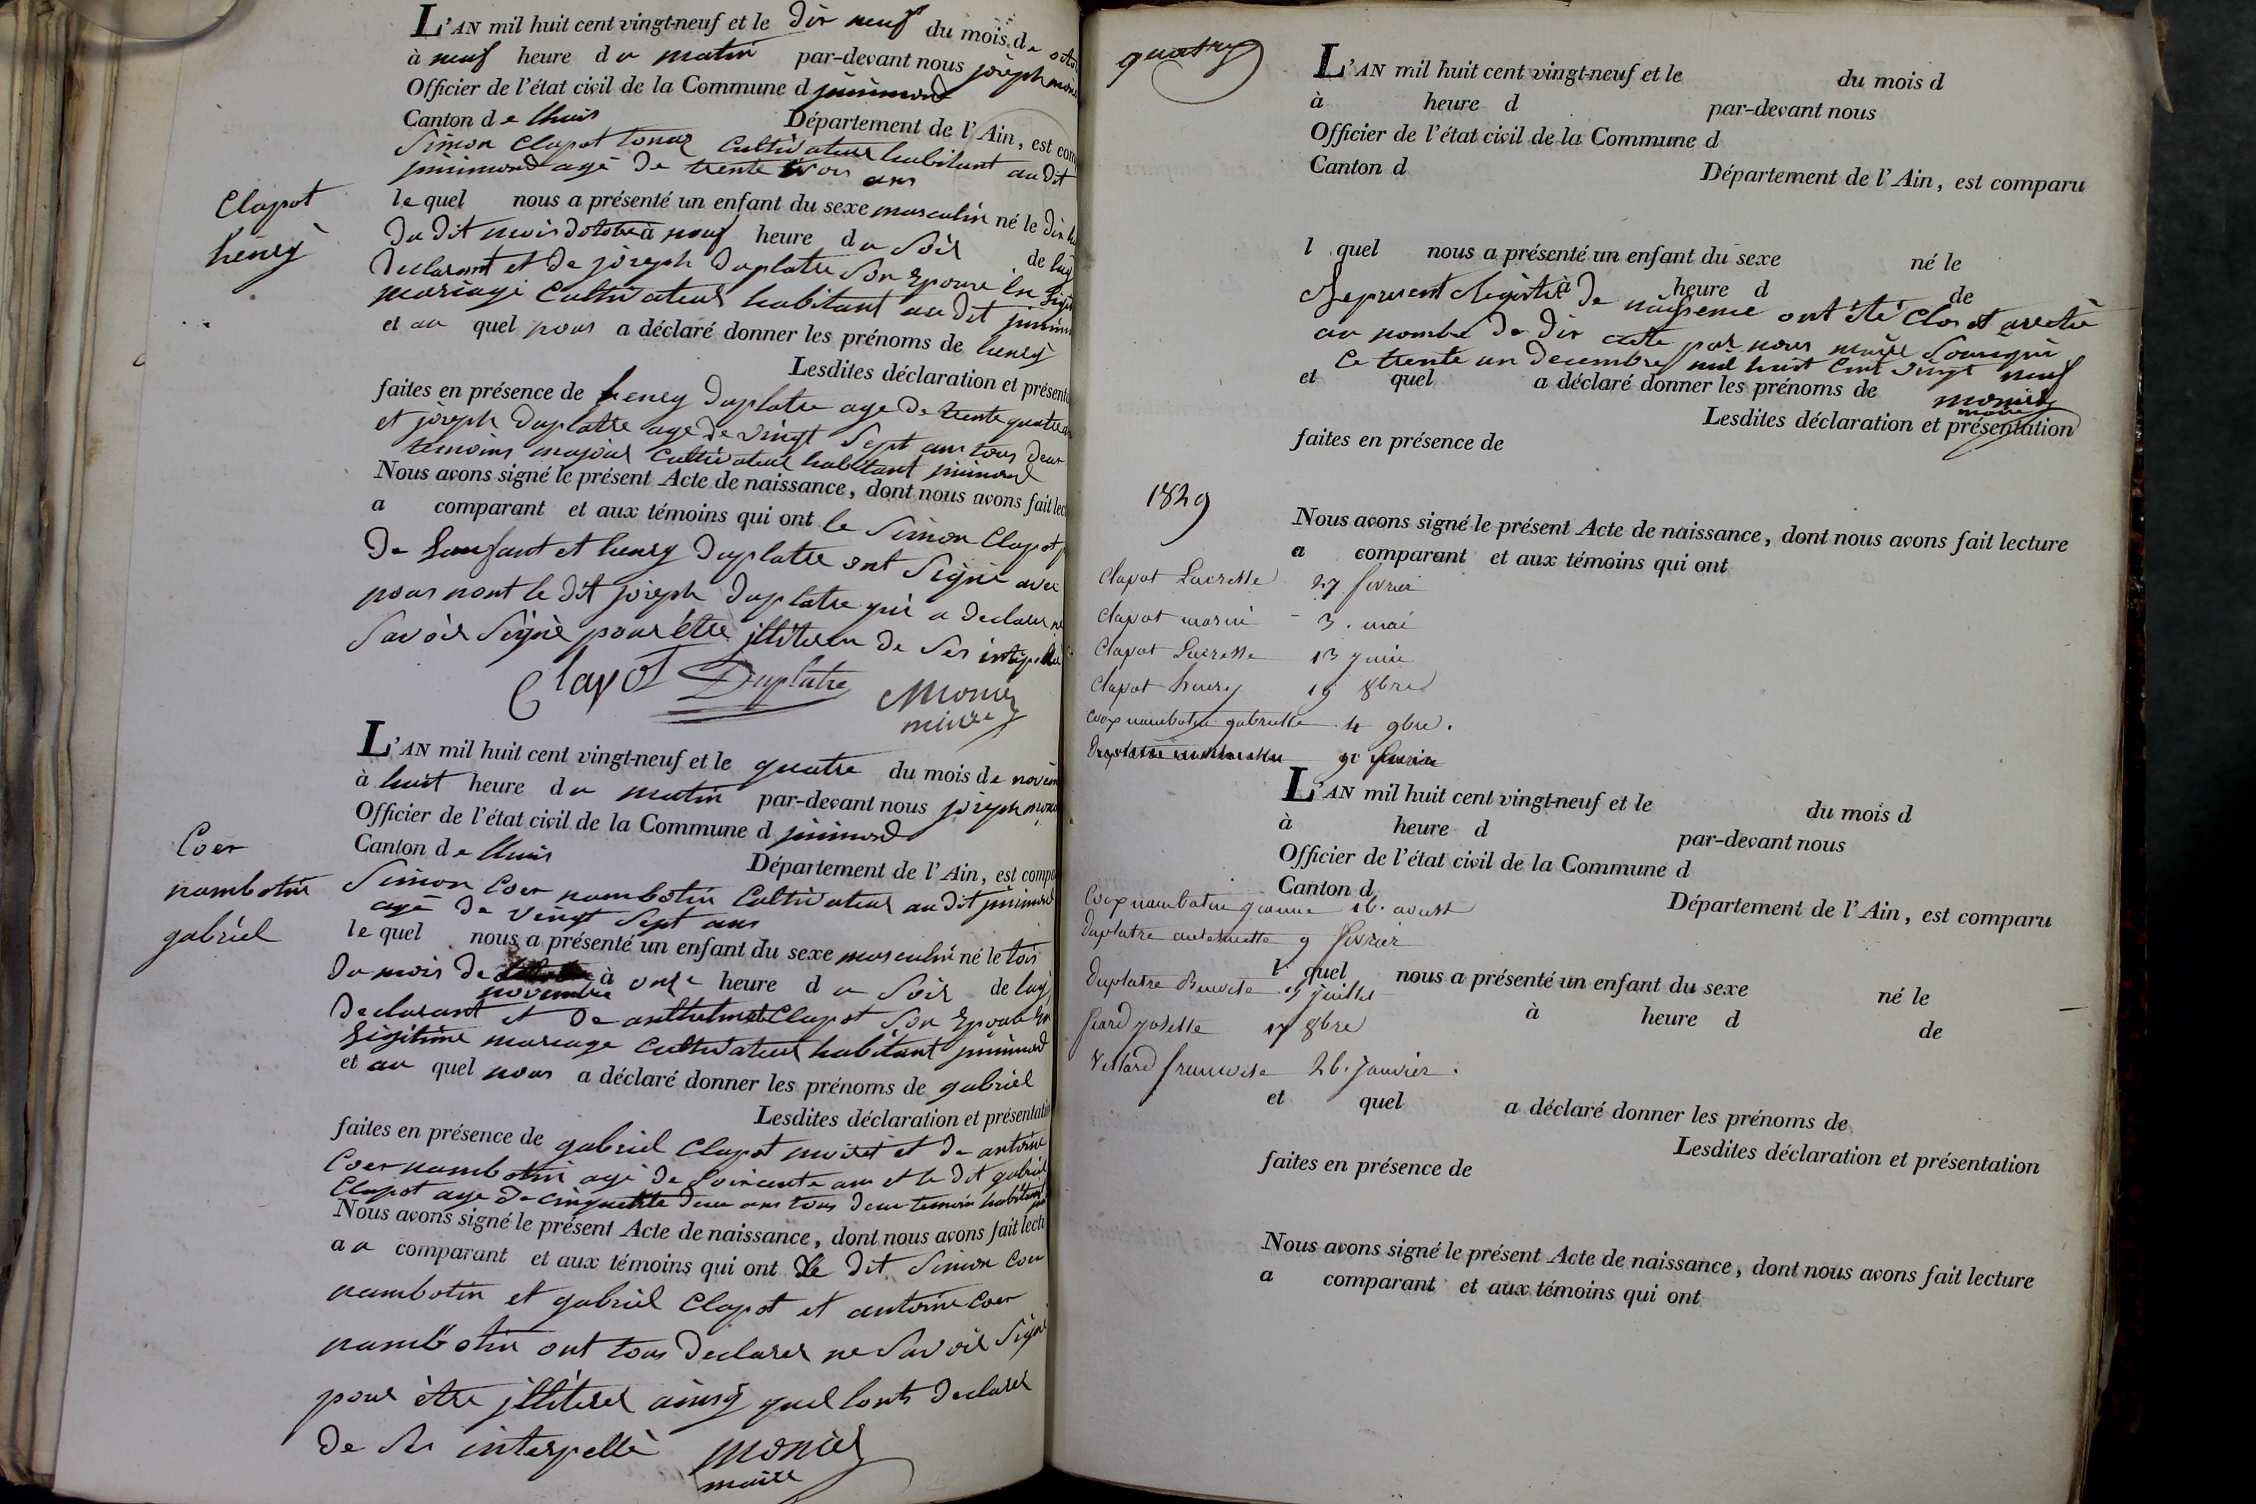 L'AN mil huit cent vingt-neuf et le dix neuf du mois de
à neuf heure du matin par-devant nous joseph
Officier de l'état civil de la Commune d jinimond
Canton de lhuis Département de l'Ain, est
Simon Clapot tonoz Cultivateur habitant au dit
jinimond agé de trente trois ans
Clapot
henry
lequel nous a présenté un enfant du sexe masculin né le dix
du dit mois doctobre à neuf heure du Soir de luy
declarant et de joseph duplatre Son Epouse En
mariage Cultivateur habitant au dit
et au quel nous a déclaré donner les prénoms de henry
Lesdites déclaration et
faites en présence de henry duplatre age de trente quatre
et joseph duplatre age de vingt Sept ans tous deux
temoins majeur Cultivateur habitant jinimond
Nous avons signé le présent Acte de naissance, dont nous avons fait
a comparant et aux témoins qui ont le Simon Clapot
de Lenfant et henry duplatre ont Signé avec
nous nont le dit joseph duplatre qui a declarer
Savoir Signé pour être jllitéré de Ses
Clapot Duplatre Monier
maire
L'AN mil huit cent vingt-neuf et le quatre du mois de
à huit heure du matin par-devant nous joseph
Officier de l'état civil de la Commune d jinimond
Canton de lhuis Département de l'Ain, est
Coer
nambotin
gabriel
Simon Coer nambotin Cultivateur au dit jinimond
agé de vingt Sept ans
lequel nous a présenté un enfant du sexe masculin né le
du mois de à onze heure du Soir de luy
novembre
declarant et de Clapot Son Epouse En
Légitime mariage Cultivateur habitant jinimond
et au quel nous a déclaré donner les prénoms de gabriel
Lesdites déclaration et
faites en présence de gabriel Clapot et de antoine
Coer nambotin agé de Soixante ans et le dit gabriel
Clapot age de cinquante deux ans tous deux temoins
Nous avons signé le présent Acte de naissance, dont nous avons fait
au comparant et aux témoins qui ont Le dit Simon Coer
nambotin et gabriel Clapot et antoine Coer
nambotin ont tous declarer ne Savoir Signé
pour être jllitérer ainsy quel lonts declarer
de Ses interpellé monier
maire
L'AN mil huit cent vingt-neuf et le du mois d
à heure d par-devant nous
Officier de l'état civil de la Commune d
Canton d Département de l'Ain, est comparu
l quel nous a présenté un enfant du sexe né le
à heure d de
Le present Registre de naissence ont été Clos et arretée
au nombre de dix acte par nous maire Soussigné
Ce trente un decembre mil huit Cent vingt neuf
et quel a déclaré donner les prénoms de
monier
maire
Lesdites déclaration et présentation
faites en présence de
1829
Nous avons signé le présent Acte de naissance, dont nous avons fait lecture
a comparant et aux témoins qui ont
Clapot 27 fevrier
Clapot marie 3. mai
Clapot 13 juin
Clapot henry 19 8bre
nambotin 4 9bre.
L'AN mil huit cent vingt-neuf et le du mois d
à heure d par-devant nous
Officier de l'état civil de la Commune d
Canton d Département de l'Ain, est comparu
nambotin 16. aoust
duplatre antoinette 9 fevrier
l quel nous a présenté un enfant du sexe né le
duplatre juillet
à heure d de
josette 17 8bre
francoise 26. janvier.
et quel a déclaré donner les prénoms de
Lesdites déclaration et présentation
faites en présence de
Nous avons signé le présent Acte de naissance, dont nous avons fait lecture
a comparant et aux témoins qui ont